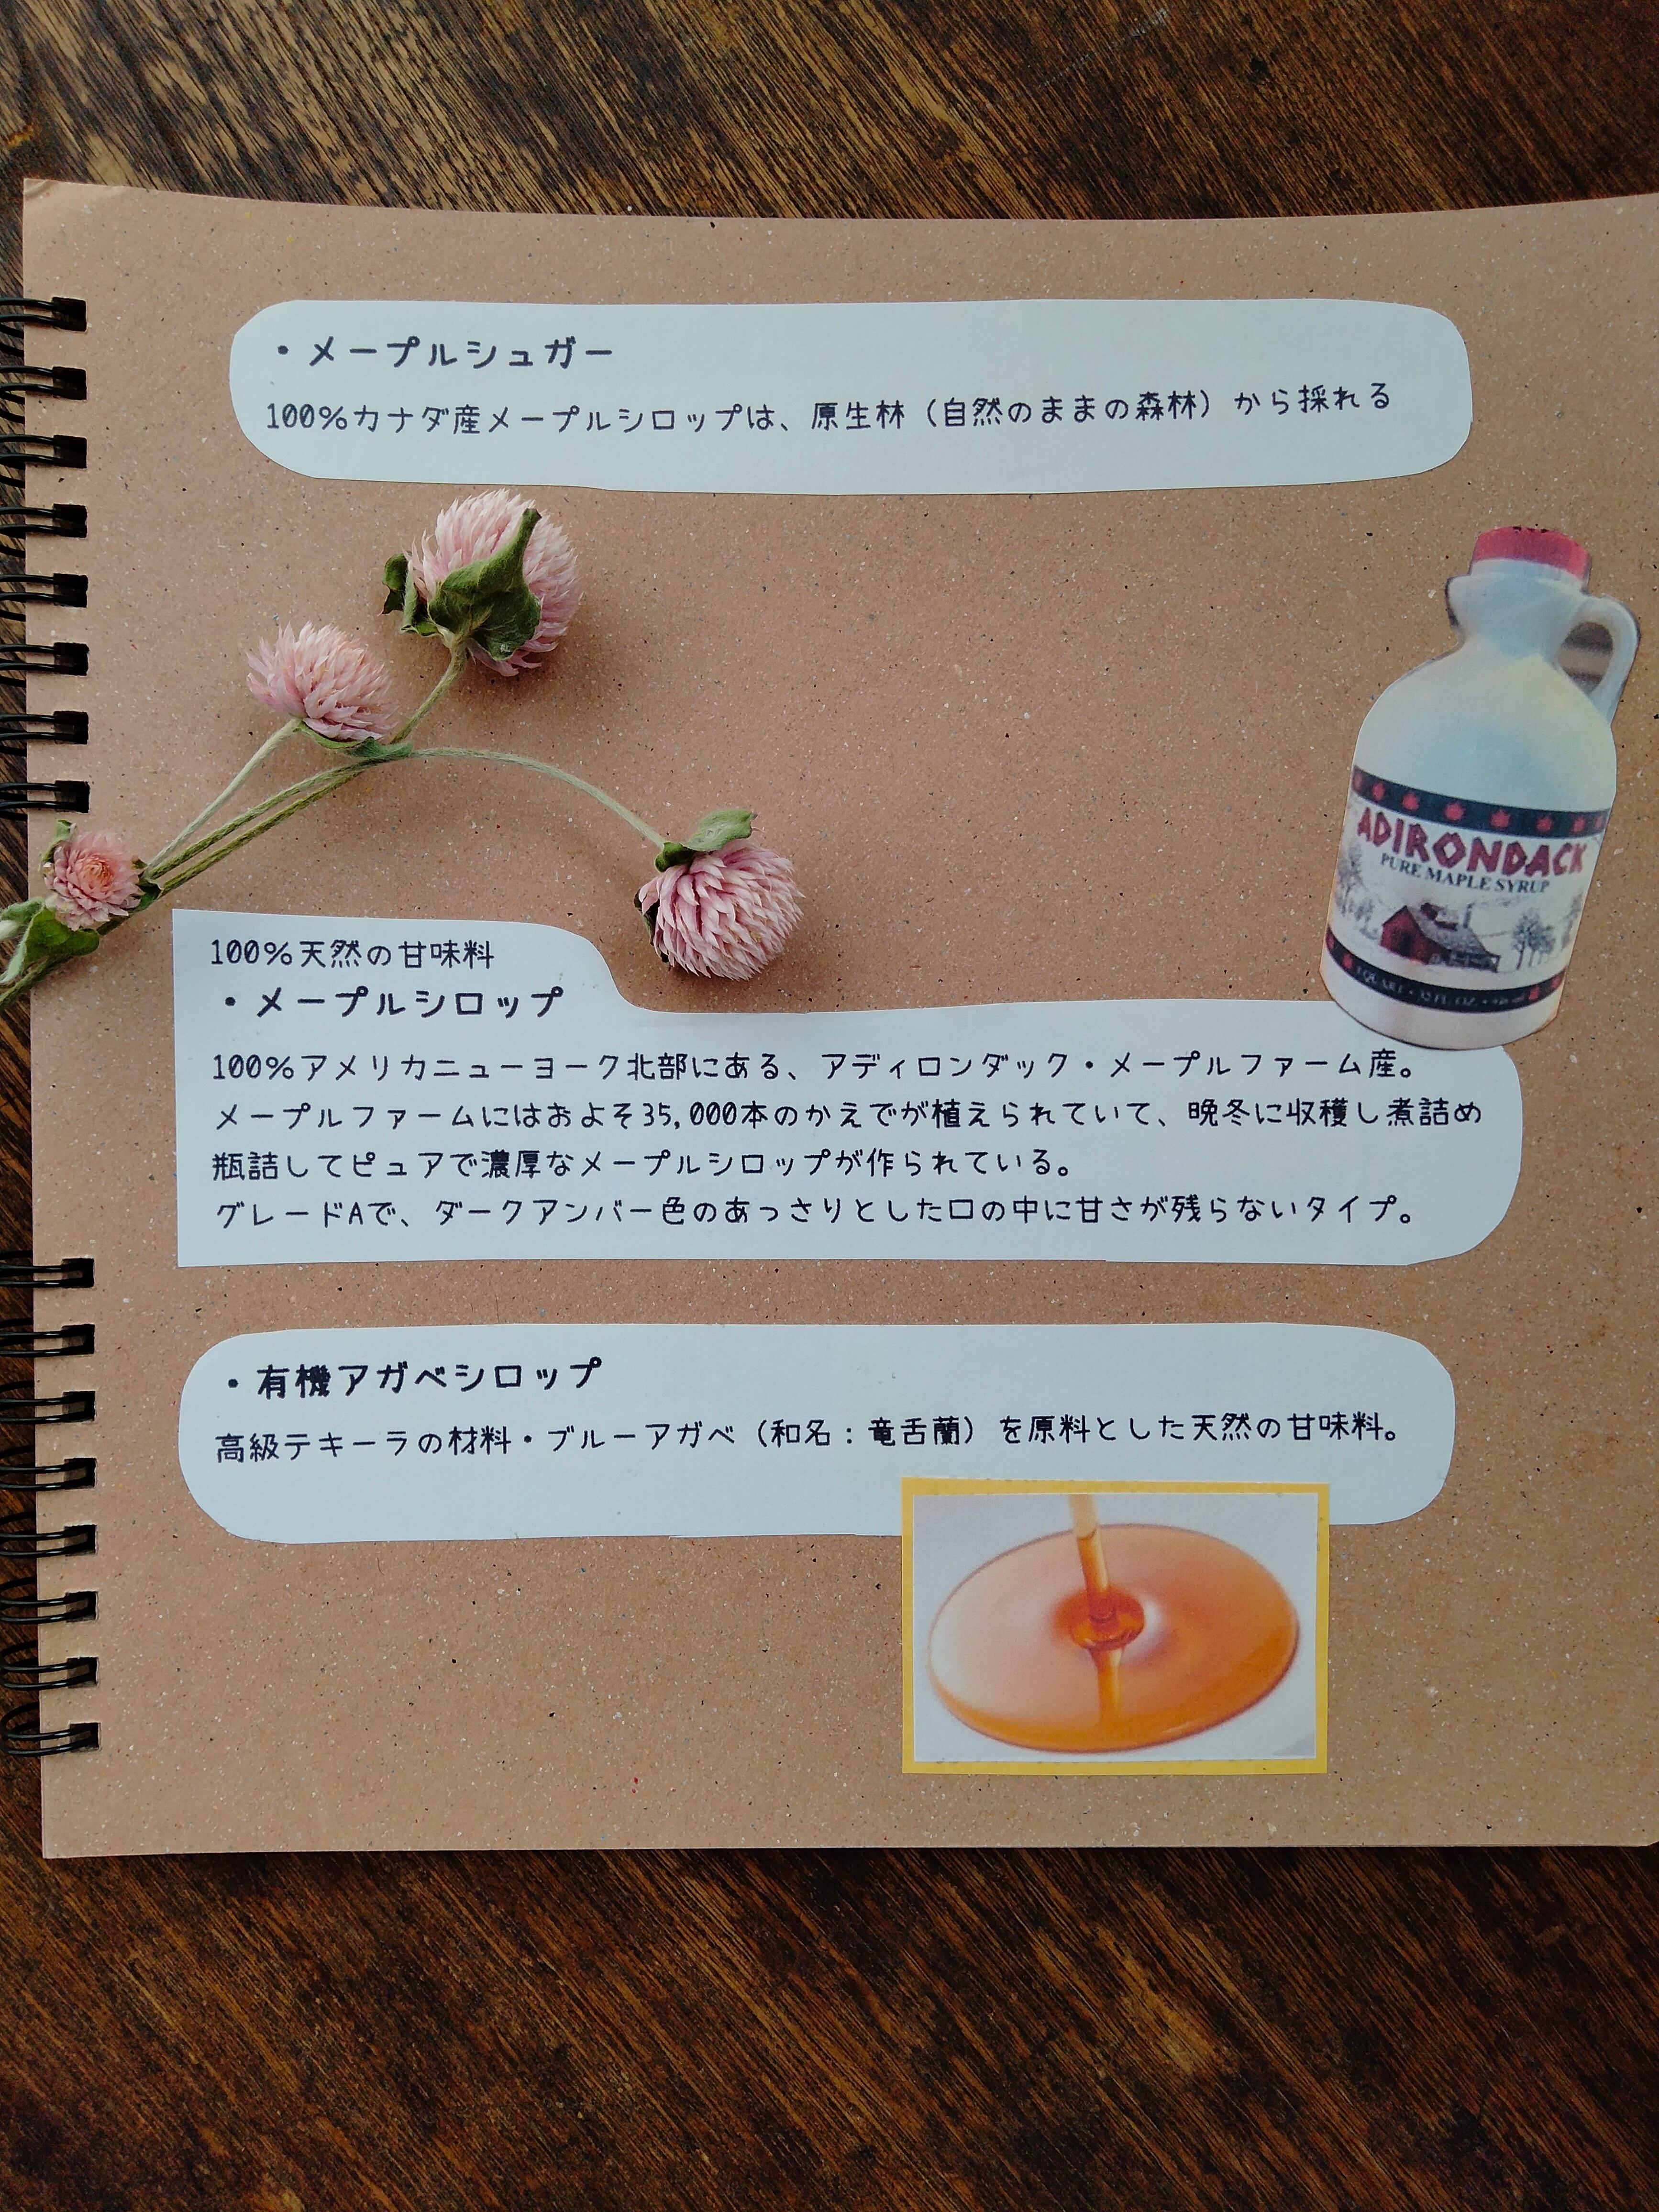 ・メープルシュガー
100%カナダ産メープルシロップは、原生林（自然のままの森林）から採れる
ADIRONDACK
PURE MAPLE SYRUP
100%天然の甘味料
・メープルシロップ
100%アメリカニューヨーク北部にある、アディロンダック・メープルファーム産。
メープルファームにはおよそ35,000本のかえでが植えられていて、晩冬に収穫し煮詰め
瓶詰してピュアで濃厚なメープルシロップが作られている。
グレードAで、ダークアンバー色のあっさりとした口の中に甘さが残らないタイプ。
・有機アガベシロップ
高級テキーラの材料・ブルーアガベ（和名：竜舌蘭）を原料とした天然の甘味料。